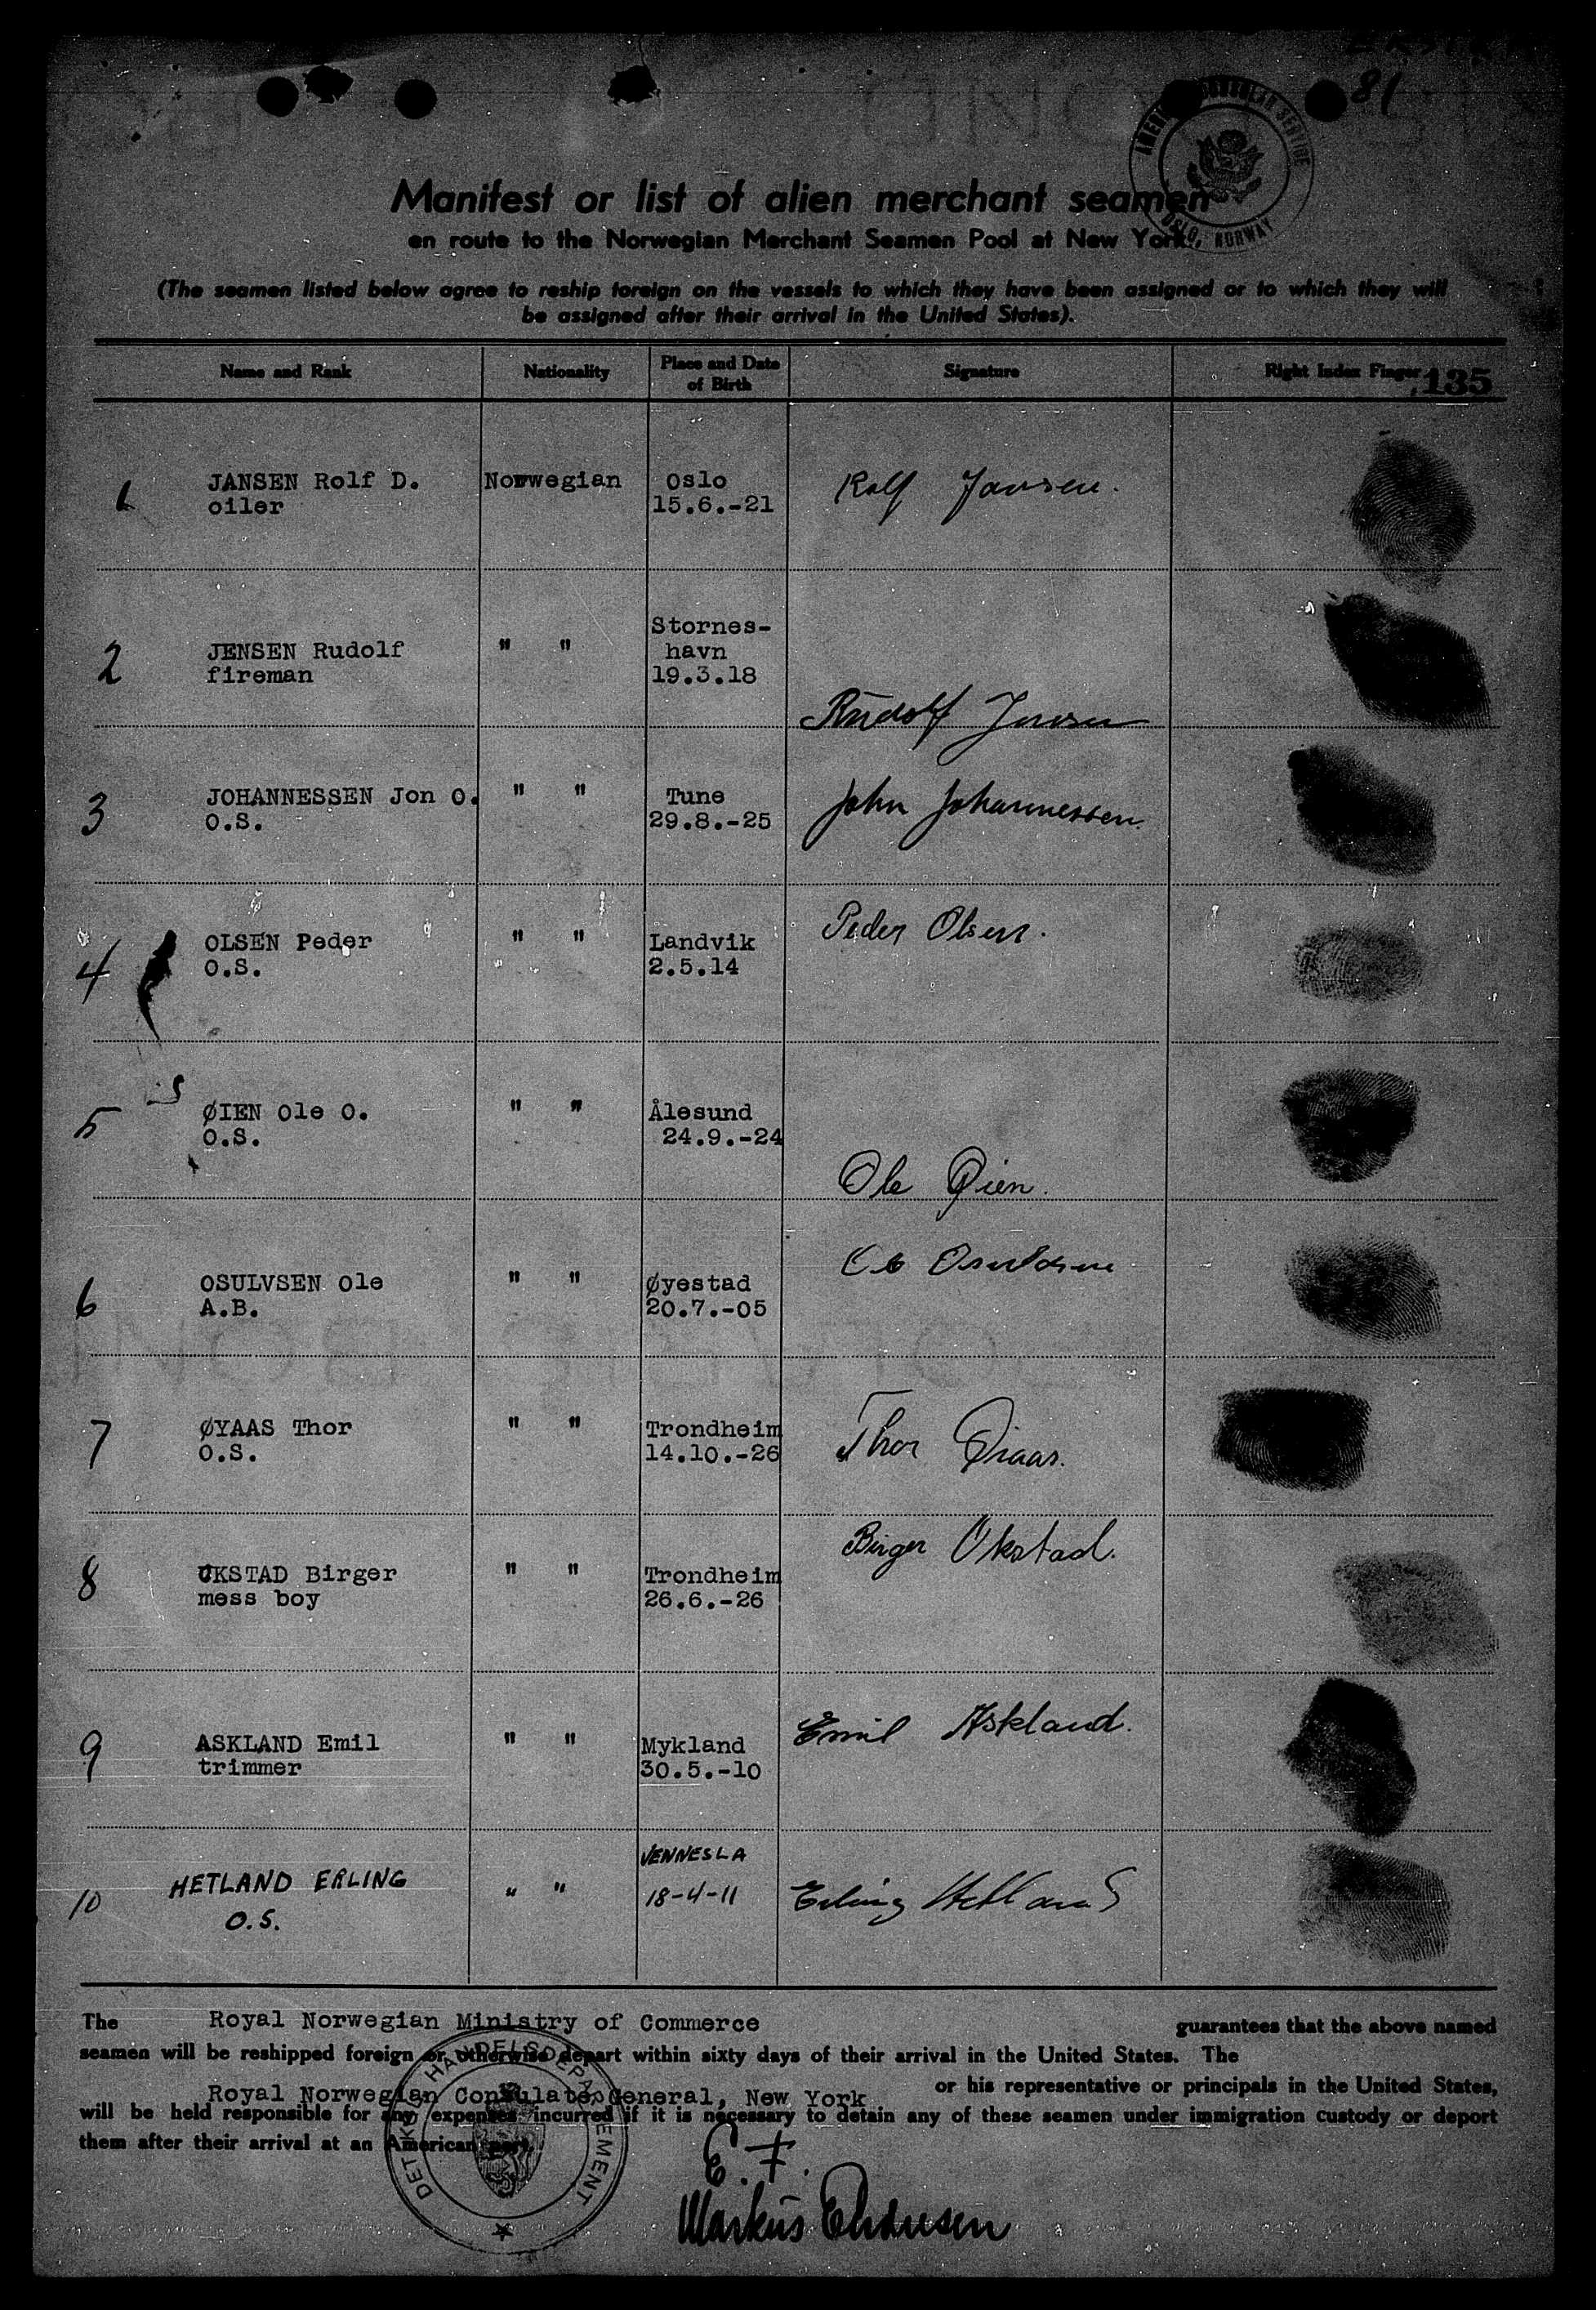 81
AMERICAN CONSULAR SERVICE
OSLO, NORWAY
Manifest or list of alien merchant seamen
en route to the Norwegian Merchant Seamen Pool at New York.
(The seamen listed below agree to reship foreign on the vessels to which they have been assigned or to which they will
be assigned after their arrival in the United States).
Name and Rank Nationality Place and Date of Birth Signature Right Index Finger 135
1 JANSEN Rolf D. Norwegian Oslo Rolf Jansen.
oiler 15.6.-21
Stornes-
2 JENSEN Rudolf " " havn
fireman 19.3.18
Rudolf Jensen
3 JOHANNESSEN Jon O. " " Tune John Johannessen.
O.S. 29.8.-25
4 OLSEN Peder " " Landvik Peder Olsen.
O.S. 2.5.14
5 ØIEN Ole O. " " Ålesund
O.S. 24.9.-24
Ole Øien.
6 OSULVSEN Ole " " Øyestad
A.B. 20.7.-05
7 ØYAAS Thor " " Trondheim Thor Øiaas.
O.S. 14.10.-26
8 UKSTAD Birger " " Trondheim Birger Ukstad.
mess boy 26.6.-26
9 ASKLAND Emil " " Mykland Emil Askland.
trimmer 30.5.-10
VENNESLA
10 HETLAND ERLING " " 18-4-11 Erling Hetland
O.S.
The Royal Norwegian Ministry of Commerce guarantees that the above named
seamen will be reshipped foreign or otherwise depart within sixty days of their arrival in the United States. The
Royal Norwegian Consulate General, New York or his representative or principals in the United States,
will be held responsible for any expenses incurred if it is necessary to detain any of these seamen under immigration custody or deport
them after their arrival at an American port.
DET KGL. HANDELSDEPARTEMENT
E. F.
Markus